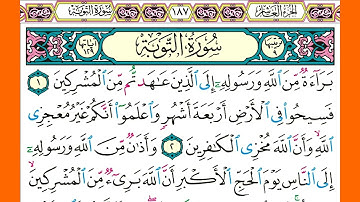 الجزء العاشر ١٨٧ سورة التوبة
سُورَةُ التَّوْبَةِ آياتها ١٢٩
بَرَآءَةٌ مِّنَ ٱللَّهِ وَرَسُولِهِۦٓ إِلَى ٱلَّذِينَ عَٰهَدتُّم مِّنَ ٱلْمُشْرِكِينَ ١
فَسِيحُوا۟ فِى ٱلْأَرْضِ أَرْبَعَةَ أَشْهُرٍ وَٱعْلَمُوٓا۟ أَنَّكُمْ غَيْرُ مُعْجِزِى
ٱللَّهِ وَأَنَّ ٱللَّهَ مُخْزِى ٱلْكَٰفِرِينَ ٢ وَأَذَٰنٌ مِّنَ ٱللَّهِ وَرَسُولِهِۦٓ
إِلَى ٱلنَّاسِ يَوْمَ ٱلْحَجِّ ٱلْأَكْبَرِ أَنَّ ٱللَّهَ بَرِىٓءٌ مِّنَ ٱلْمُشْرِكِينَ